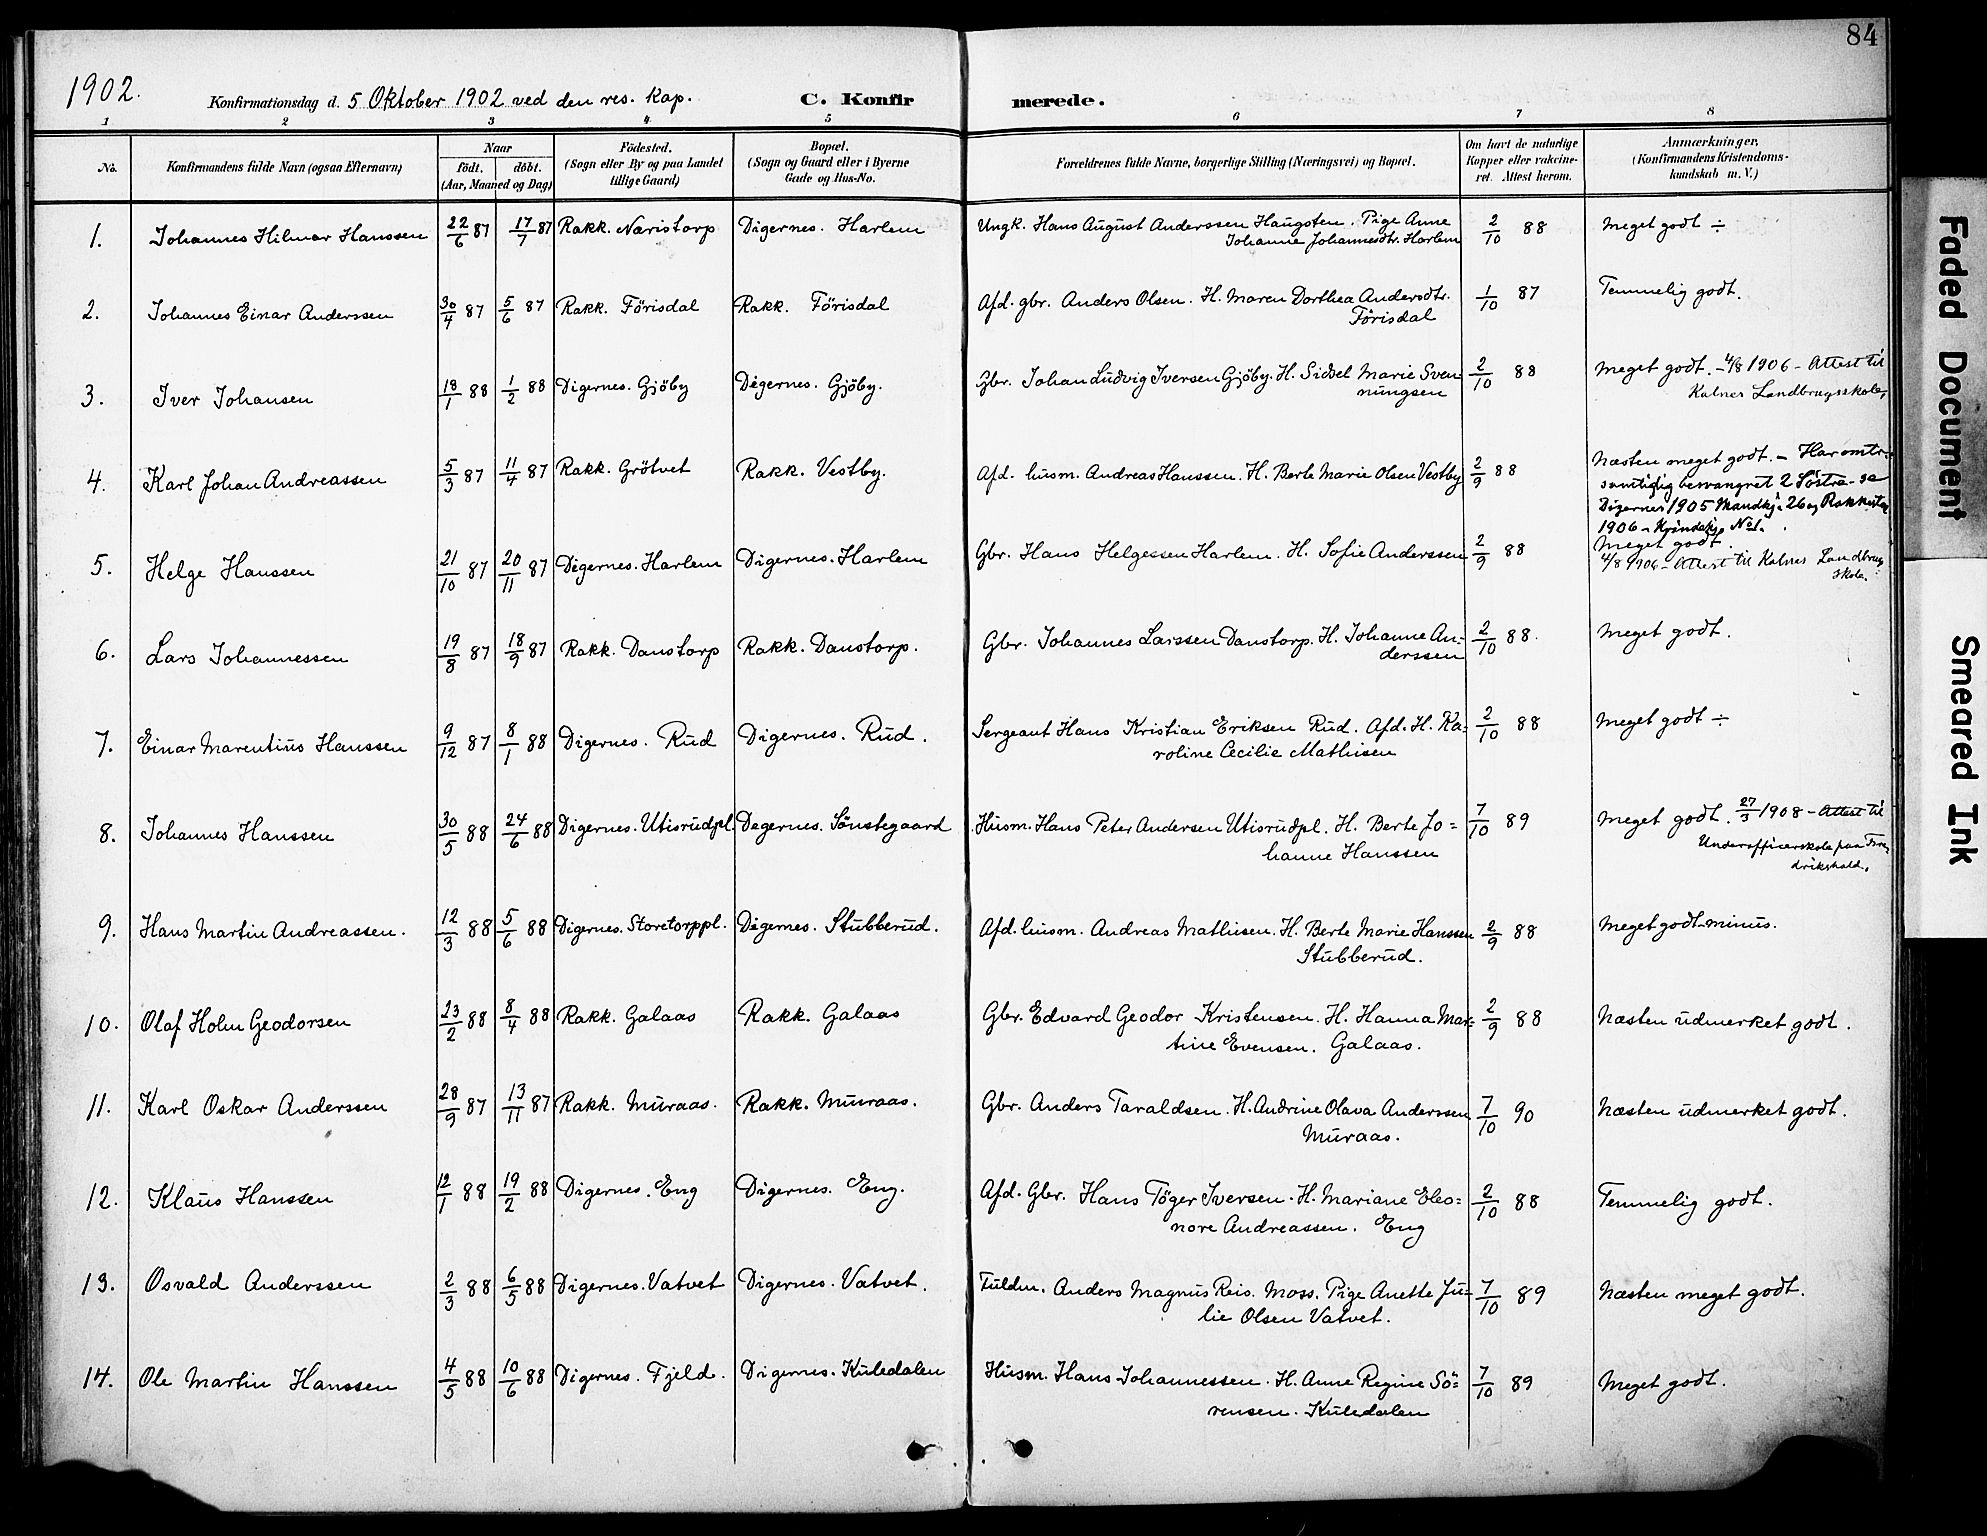 84
1902.
Konfirmationsdag d. 5 Oktober 1902 ved den res. Kap. C. Konfirmerede.
1 2 3 4 5 6 7 8
No. Konfirmandens fulde Navn (ogsaa Efternavn) Naar født. døbt. (Aar, Maaned og Dag) Fødested. (Sogn eller By og paa Landet tillige Gaard) Bopæl. (Sogn og Gaard eller i Byerne Gade og Hus-No. Forældrenes fulde Navne, borgerlige Stilling (Næringsvei) og Bopæl. Om havt de naturlige Kopper eller vakcineret. Attest herom. Anmærkninger. (Konfirmandens Kristendomskundskab m. V.)
1. Johannes Hilmar Hanssen 22/6 87 17/7 87 Rakk. Næristorp Digernes. Harlem Ungk. Hans August Anderssen Haugsten. Pige Anne 2/10 88 Meget godt ÷
Johanne Johannesdtr. Harlem
2. Johannes Einar Anderssen 30/4 87 5/6 87 Rakk. Förisdal Rakk. Förisdal Afd. gbr. Anders Olsen. H. Maren Dorthea Andersdtr. 1/10 87 Temmelig godt.
Förisdal
3. Iver Johansen 18/1 88 1/2 88 Digernes. Gjöby Digernes. Gjöby. Gbr. Johan Ludvig Iversen Gjöby. H. Sidsel Marie Sven 2/10 88 Meget godt. - 4/8 1906 - Attest til
nungsen Kalnes Landbrugsskole,
4. Karl Johan Andreassen 5/3 87 11/4 87 Rakk. Grötvet Rakk. Vestby. Afd. husm. Andreas Hanssen. H. Berte Marie Olsen Vestby 2/9 88 Næsten meget godt. - Har
samtidig 2
Digernes 1905 26 og Rakkestad
1906 - No 1.
5. Helge Hanssen 21/10 87 20/11 87 Digernes. Harlem Digernes. Harlem Gbr. Hans Helgessen Harlem. H. Sofie Anderssen 2/9 88 Meget godt
4/8 1906 - Attest til Kalnes Landbrug
skole.
6. Lars Johannessen 19/8 87 18/9 87 Rakk. Danstorp Rakk. Danstorp. Gbr. Johannes Larssen Danstorp. H. Johanne An= 2/10 88. Meget godt.
derssen
7. Einar Marentius Hanssen 9/12 87 8/1 88 Digernes. Rud Digernes. Rud. Sergeant Hans Kristian Eriksen Rud. Afd. H. Ka= 2/10 88 Meget godt ÷
roline Cecilie Mathisen
8. Johannes Hanssen 30/5 88 24/6 88 Digernes. Utisrudpl. Degernes. Sönstegaard Husm. Hans Peter Andersen Utisrudpl. H. Berte Jo= 7/10 89 Meget godt. 27/3 1908 - Attest til
hanne Hanssen Underofficerskole paa Fre
drikshald.
9. Hans Martin Andreassen. 12/3 88 5/6 88 Digernes. Storetorppl. Digernes. Stubberud. Afd. husm. Andreas Mathisen. H. Berte Marie Hanssen 2/9 88 Meget godt minus.
Stubberud.
10. Olaf Holm Geodorsen 23/2 88 8/4 88 Rakk. Galaas Rakk. Galaas Gbr. Edvard Geodor Kristensen. H. Hanna Mar= 2/9 88 Næsten udmerket godt.
tine Evensen. Galaas.
11. Karl Oskar Anderssen 28/9 87 13/11 87 Rakk. Muraas. Rakk. Muraas. Gbr. Anders Taraldsen. H. Andrine Olava Anderssen 7/10 90 Næsten udmerket godt.
Muraas.
12. Klaus Hanssen 12/1 88 19/2 88 Digernes. Eng Digernes. Eng. Afd. Gbr. Hans Töger Iversen. H. Mariane Eleo= 2/10 88 Temmelig godt.
nore Andreassen. Eng
13. Osvald Anderssen 2/3 88 6/5 88 Digernes. Vatvet Digernes. Vatvet. Fuldm. Anders Magnus Reis. Moss. Pige Anette Ju= 7/10 89 Næsten meget godt.
lie Olsen Vatvet.
14. Ole Martin Hanssen 4/5 88 10/6 88 Digernes. Fjeld. Digernes. Kuledalen Husm. Hans Johannessen. H. Anne Regine Sö= 7/10 89 Meget godt.
rensen. Kuledalen
Faded Document
Smeared Ink